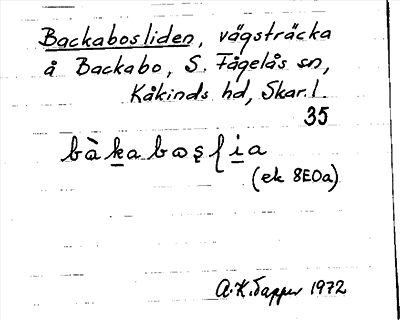 Backabosliden, vägsträcka
å Backabo, S. Fågelås sn,
Kåkinds hd, Skar. l.
35
(ek 8E0a)
A.K. Tapper 1972